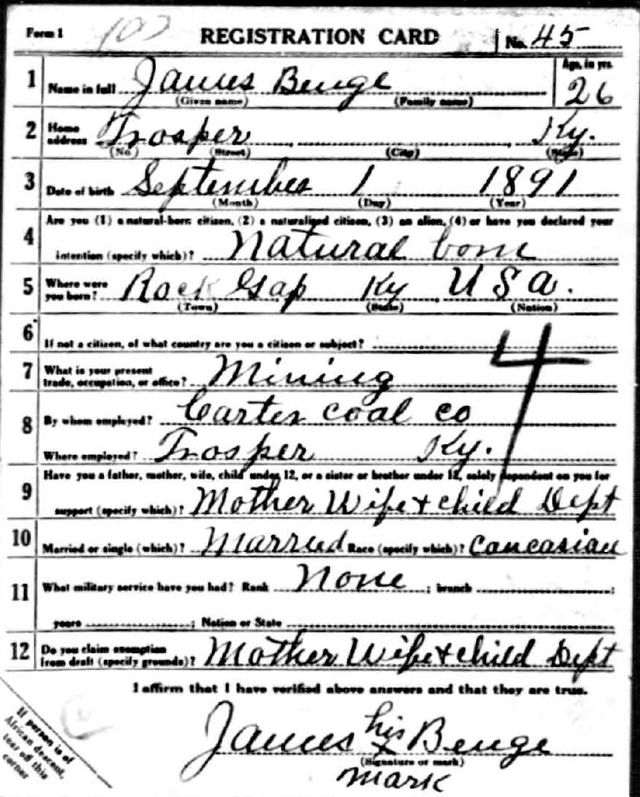 Form 1 107 REGISTRATION CARD No. 45
1 Name in full James Benge Age, in yrs. 26
(Given name) (Family name)
2 Home address Trosper Ky.
(No) (Street) (City) (State)
3 Date of birth September 1 1891
(Month) (Day) (Year)
4 Are you (1) a natural-born citizen, (2) a naturalized citizen, (3) an alien, (4) or have you declared your
intention (specify which)? Natural born
5 Where were you born? Rock Gap Ky USA.
(Town) (State) (Nation)
6 If not a citizen, of what country are you a citizen or subject?
4
7 What is your present trade, occupation, or office? Mining
8 By whom employed? Carter coal co
Where employed? Trosper Ky.
9 Have you a father, mother, wife, child under 12, or a sister or brother under 12, solely dependent on you for
support (specify which)? Mother Wife + child Dept
10 Married or single (which)? Married Race (specify which)? Caucasian
11 What military service have you had? Rank None ; branch ;
years ; Nation or State
12 Do you claim exemption from draft (specify grounds)? Mother Wife + child Dept
I affirm that I have verified above answers and that they are true.
James his x Benge
(Signature or mark)
mark
If person is of
African descent,
tear off this
corner